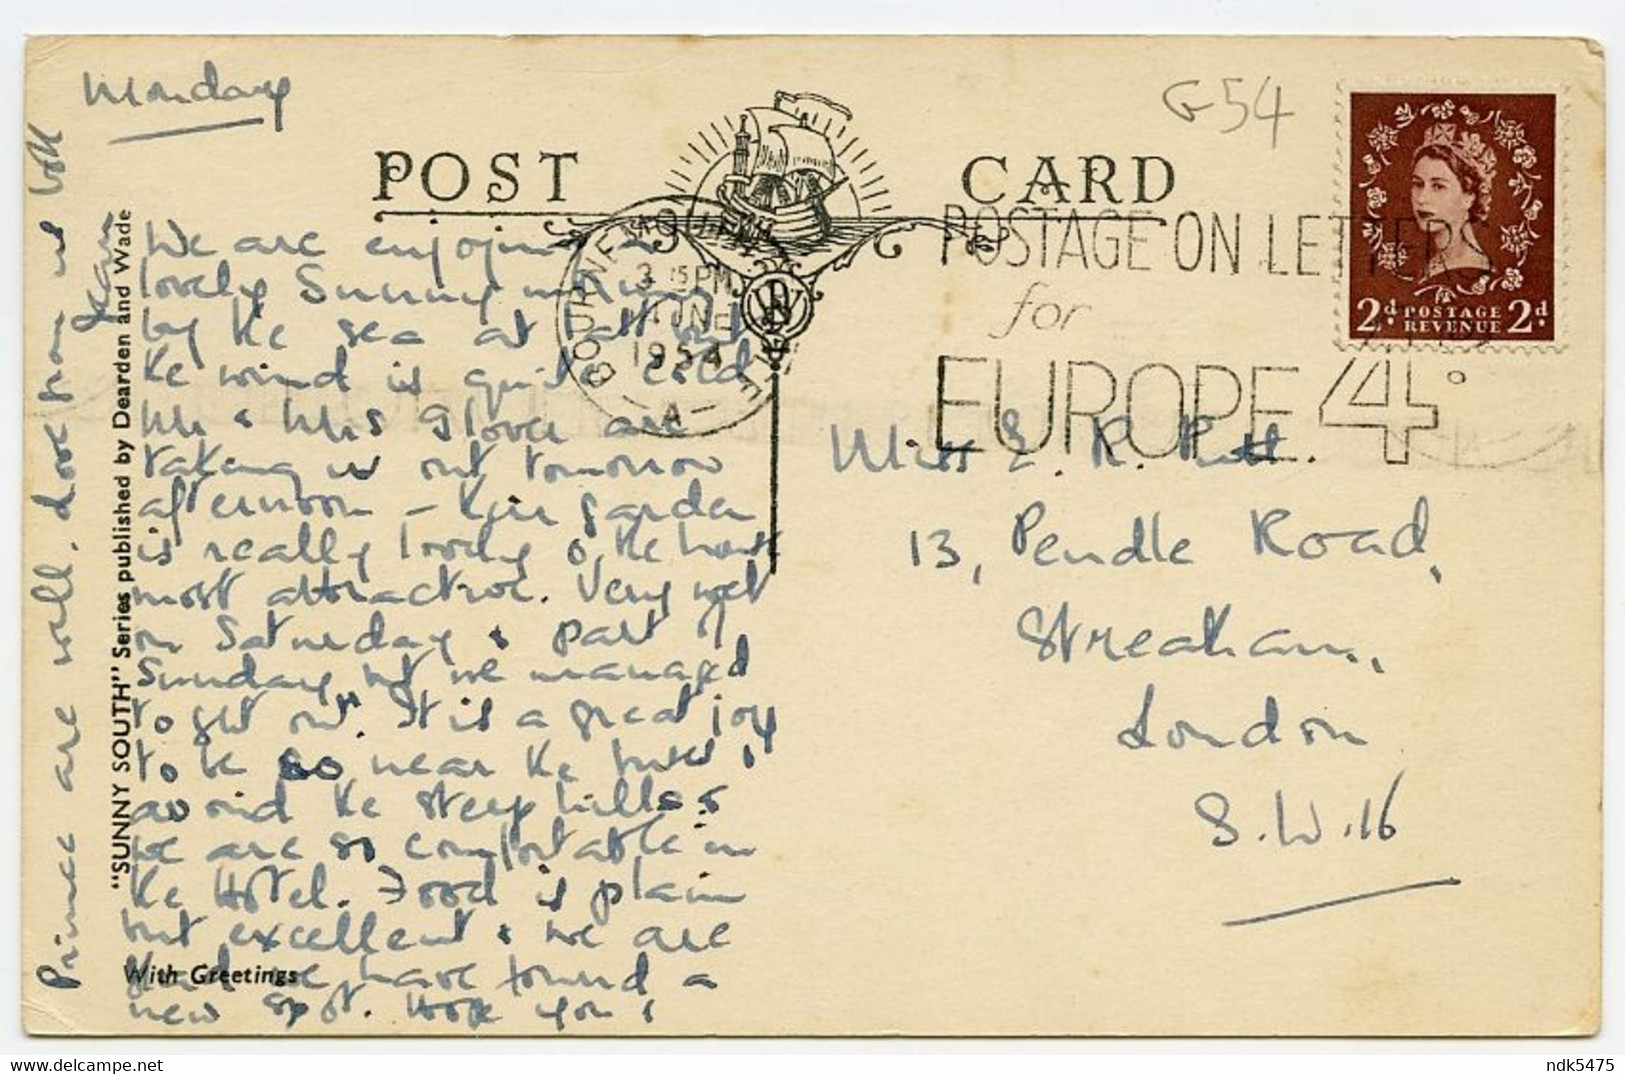 Monday
G54
POST CARD
BOURNEMOUTH
3 15 PM
JUNE
1954
A
POSTAGE ON LETTERS
for
EUROPE 4D
2D POSTAGE REVENUE 2D
We are enjoying a
lovely Sunny morning
by the sea at last but
the wind is quite cold
Mr & Mrs Glover are
taking us out tomorrow
afternoon – their garden
is really lovely & the house
most attractive. Very wet
on Saturday & part of
Sunday but we managed
to get out. It is a great joy
to be so near the buses &
avoid the steep hills &
we are so comfortable in
the Hotel. Food is plain
but excellent & we are
glad we have found a
new spot. Hope you &
Prince are well. Love from us both
Jean
Miss E. R. Putt.
13, Pendle Road,
Streatham,
London
S.W.16
"SUNNY SOUTH" Series published by Dearden and Wade
With Greetings
ndk5475